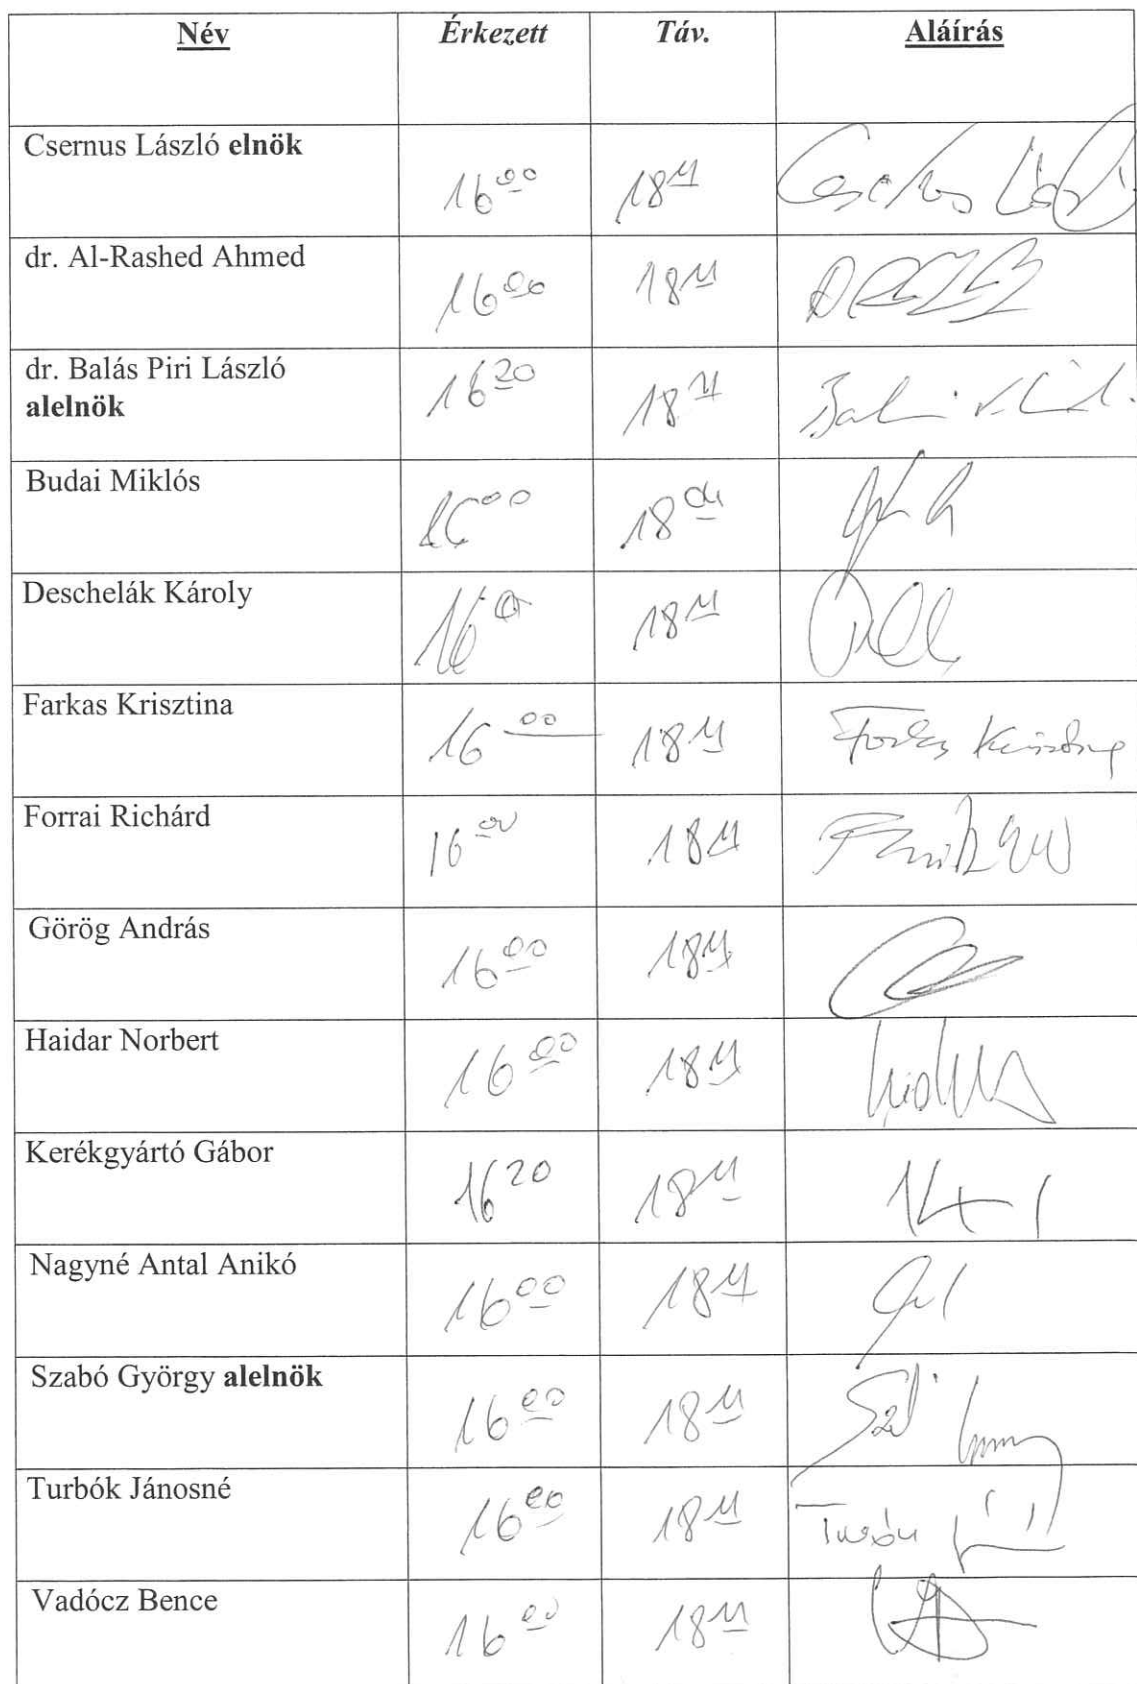 Név Érkezett Táv. Aláírás
Csernus László elnök 16 00 18 11
dr. Al-Rashed Ahmed 16 00 18 11
dr. Balás Piri László 16 20 18 11
alelnök
Budai Miklós 16 00 18
Deschelák Károly 16 18 11
Farkas Krisztina 16 00 18 11 Farkas Krisztina
Forrai Richárd 16 00 18 11
Görög András 16 00 18 11
Haidar Norbert 16 00 18 11
Kerékgyártó Gábor 16 20 18 11
Nagyné Antal Anikó 16 00 18 11
Szabó György alelnök 16 00 18 11
Turbók Jánosné 16 00 18 11
Vadócz Bence 16 00 18 11